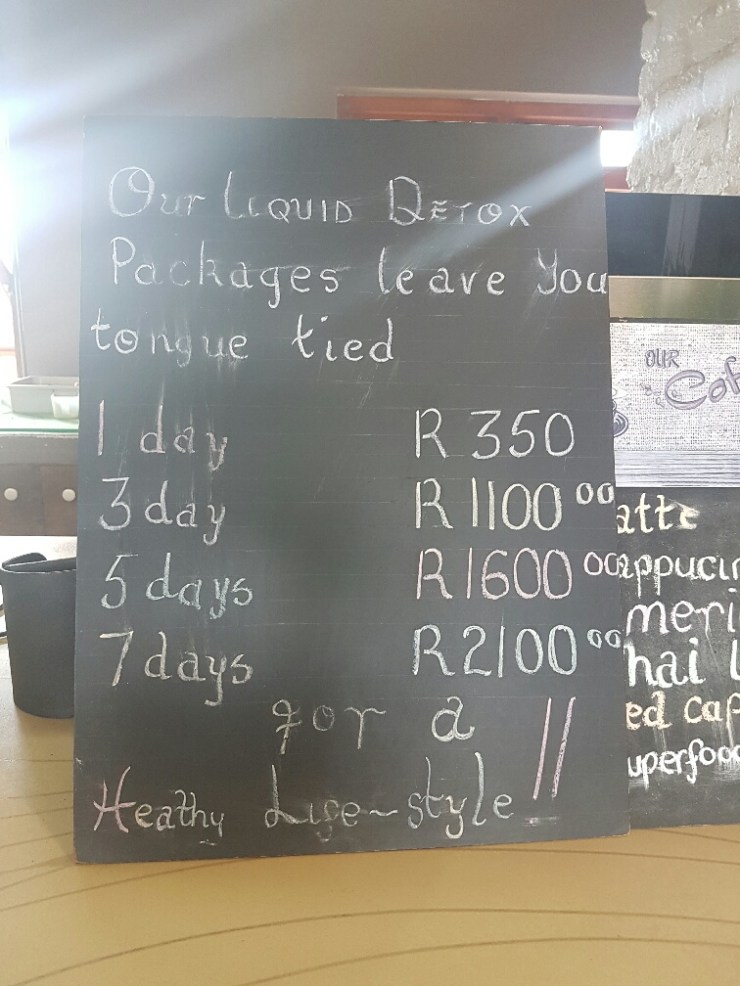 Our LIQUID DETOX
Packages leave You
tongue tied
1 day R 350
3 day R 1100 00
5 days R 1600 00
7 days R 2100 00
for a
Heathy Life-style !!
OUR
Cof
atte
appucin
meri
hai L
ed cap
uperfood